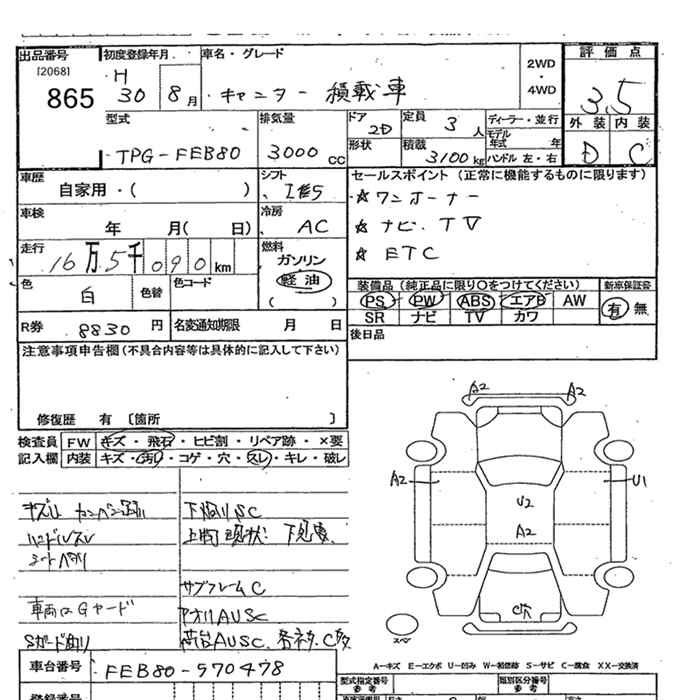 出品番号 初度登録年月 車名・グレード 2WD・4WD 評価点
[2068] H
865 30 8月 キャンター 積載車 3.5
型式 排気量 ドア 2D 定員 3人 ディーラー・並行 外装 内装
モデル年式 年
TPG-FEB80 3000cc 形状 積載 3100kg ハンドル 左・右 D C
車歴 シフト セールスポイント (正常に機能するものに限ります)
自家用・( ) ☆ワンオーナー
車検 冷房 ☆ナビ、TV
年 月( 日) AC ☆ETC
走行 燃料
16万5千090km ガソリン
軽油
色 色替 色コード 装備品 (純正品に限り○をつけてください) 新車保証書
白 ( ) PS PW ABS エアB AW 有 無
SR ナビ TV カワ
R券 8830円 名変通知期限 月 日 後日品
注意事項申告欄(不具合内容等は具体的に記入して下さい)
修復歴 有 〔箇所 〕
検査員 FW キズ・飛石・ヒビ割・リペア跡・×要
記入欄 内装 キズ・汚れ・コゲ・穴・スレ・キレ・破レ
A2 A2
A2 U1
U2
A2
ハンドルスレ
サブフレームC
車両はGヤード
C穴
スペア
A-キズ E-エクボ U-凹み W-補修跡 S-サビ C-腐食 XX-交換済
車台番号 FEB80-570478
型式指定番号 参考 類別区分番号 参考
登録番号